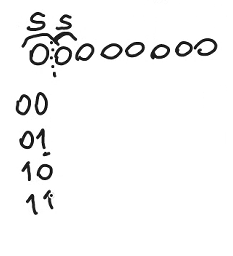 S S
00000000
00
01
10
11